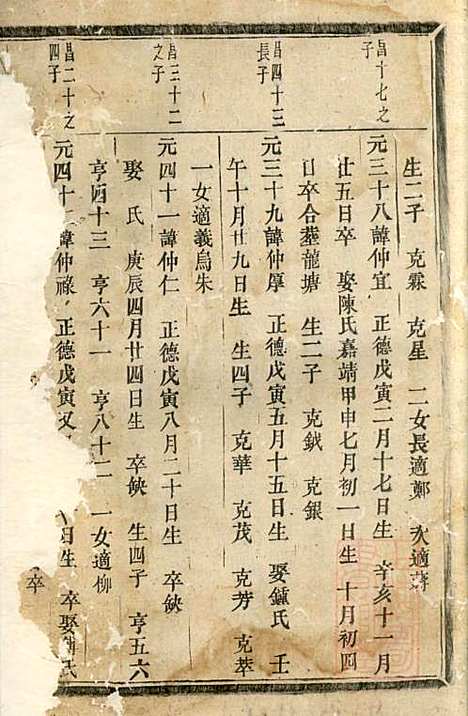 生二子 克霖 克星 二女長適鄭 次適蔣
昌十七之子
元三十八諱仲宜 正德戊寅二月十七日生 辛亥十一月
廿五日卒 娶陳氏嘉靖甲申七月初一日生 十月初四
日卒合塟龍塘 生二子 克鉞 克銀
昌四十三長子
元三十九諱仲厚 正德戊寅五月十五日生 娶鍾氏 壬
午十月廿九日生 生四子 克華 克茂 克芳 克萃
一女適義烏朱
昌三十二之子
元四十一諱仲仁 正德戊寅八月二十日生 卒缺
娶 氏 庚辰四月廿四日生 卒缺 生四子 亨五六
亨四十三 亨六十一 亨八十二 一女適柳
昌二十之四子
元四十 諱仲祿 正德戊寅又 日生 卒娶 氏
卒